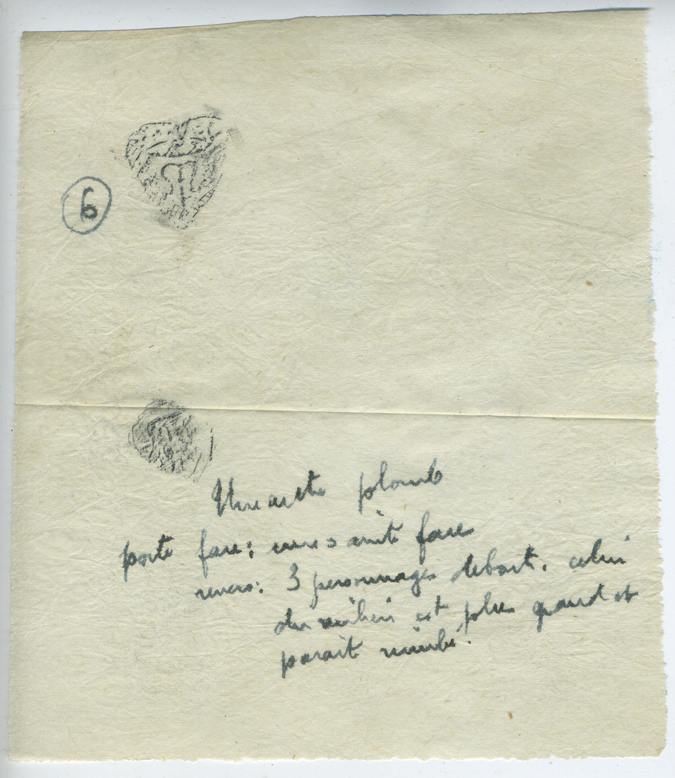 6
Une autre plomb
porte face:
face
revers: 3 personnages debout. celui
du milieu est plus grand et
parait nimbé.